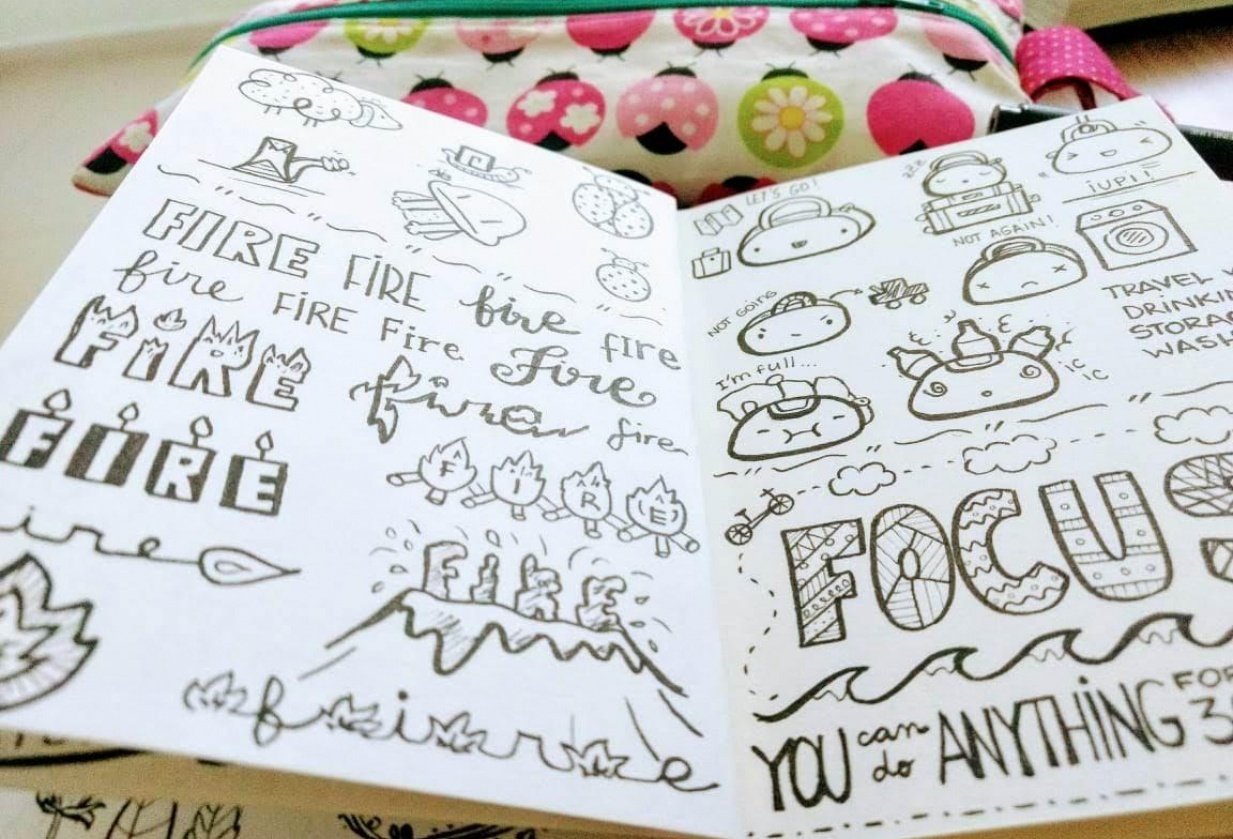 FIRE FIRE fire fire
fire FIRE Fire Fire
FIRE fire fire
FIRE FIRE
ire
FIRE
fire
LET'S GO!
zzz
¡UPI!
NOT AGAIN!
NOT GOING
I'm full...
IC
IC
TRAVEL
DRINKIN
STORAG
WASH
FOCUS
YOU can do ANYTHING FOR